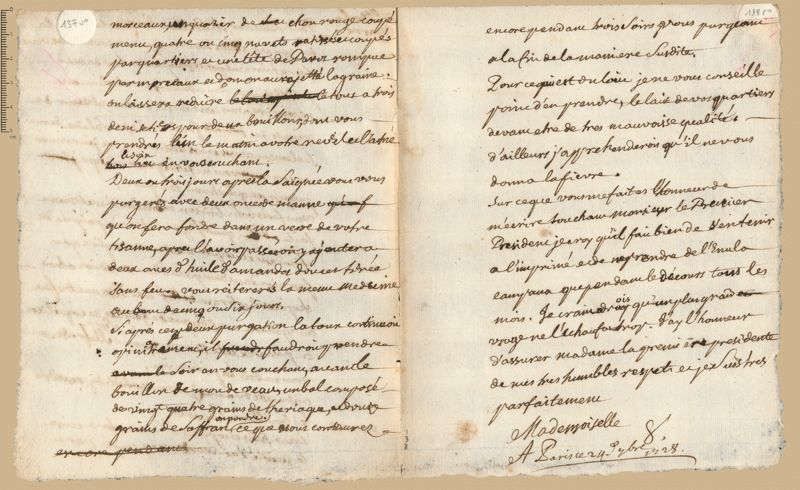 137 v°
morceaux, un quartier de chou rouge coupé
menu, quatre ou cinq navets ratissé coupés
par quartiers et une tête de Pavot rompue
par morceaux et dont on aura jetté la graine.
on laissera reduire le tout a trois
demi setiers pour deux bouillons, dont vous
prendres l'un le matin a votre reveil et l'autre
le soir
en vous couchant.
Deux ou trois jours apres la Saignée vous vous
purgeres avec deux onces de manne
qu'on fera fondre dans un verre de votre
tisanne, apres l'avoir passé on y ajoutera
deux onces d'huile d'amandes douces tirée
sans feu. vous réitererés la meme medecine
au bout de cinq ou six jours.
Si apres ces deux purgation la toux continuoit
opiniatrement, il faudroit prendre
le Soir en vous couchant, avant le
bouillon de mou de veau, un bol composé
de vingt quatre grains de theriaque et douze
grains de Saffran en poudre, ce que vous continurez
encore pendant
138 r°
encore pendant trois Soirs, vous purgeant
a la fin de la maniere Susdite.
Pour ce qui est du lait je ne vous conseille
point d'en prendre, le lait de vos quartiers
devant etre de tres mauvaise qualité.
d'ailleurs j'apprehenderois qu'il ne vous
donna la fievre.
Sur ce que vous me faites l'honneur de
m'écrire touchant monsieur le Premier
President je croy qu'il fau bien de S'en tenir
a l'imprimé et de ne prendre de l'Enula
campana que pendant le décours tous les
mois. Je craindrois qu'un plus grand
usage ne l'échaufat trop. J'ay l'honneur
d'assurer madame la premiere presidente
de mes tres humbles respets et je Suis tres
parfaitement
Mademoiselle
A Paris ce 24 1728.